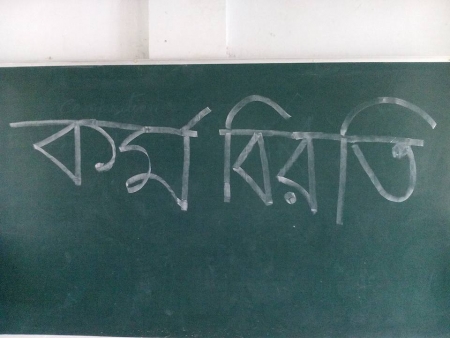 কর্ম বিরতি